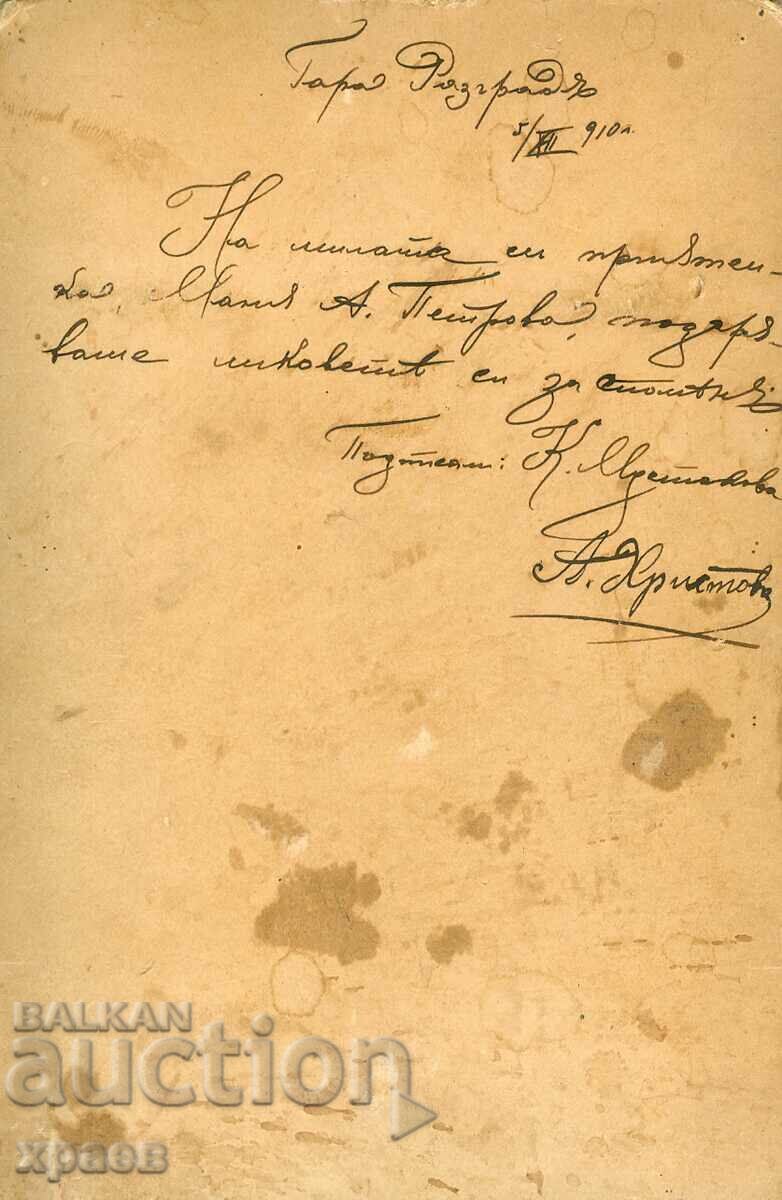 Гара Разградъ
5/XII 910 г.
На милата си приятел-
ка, Мания А. Петрова, подаря-
ваме ликоветѣ си за споменъ
Подписали: К.
А. Христова
BALKAN
auction
храев